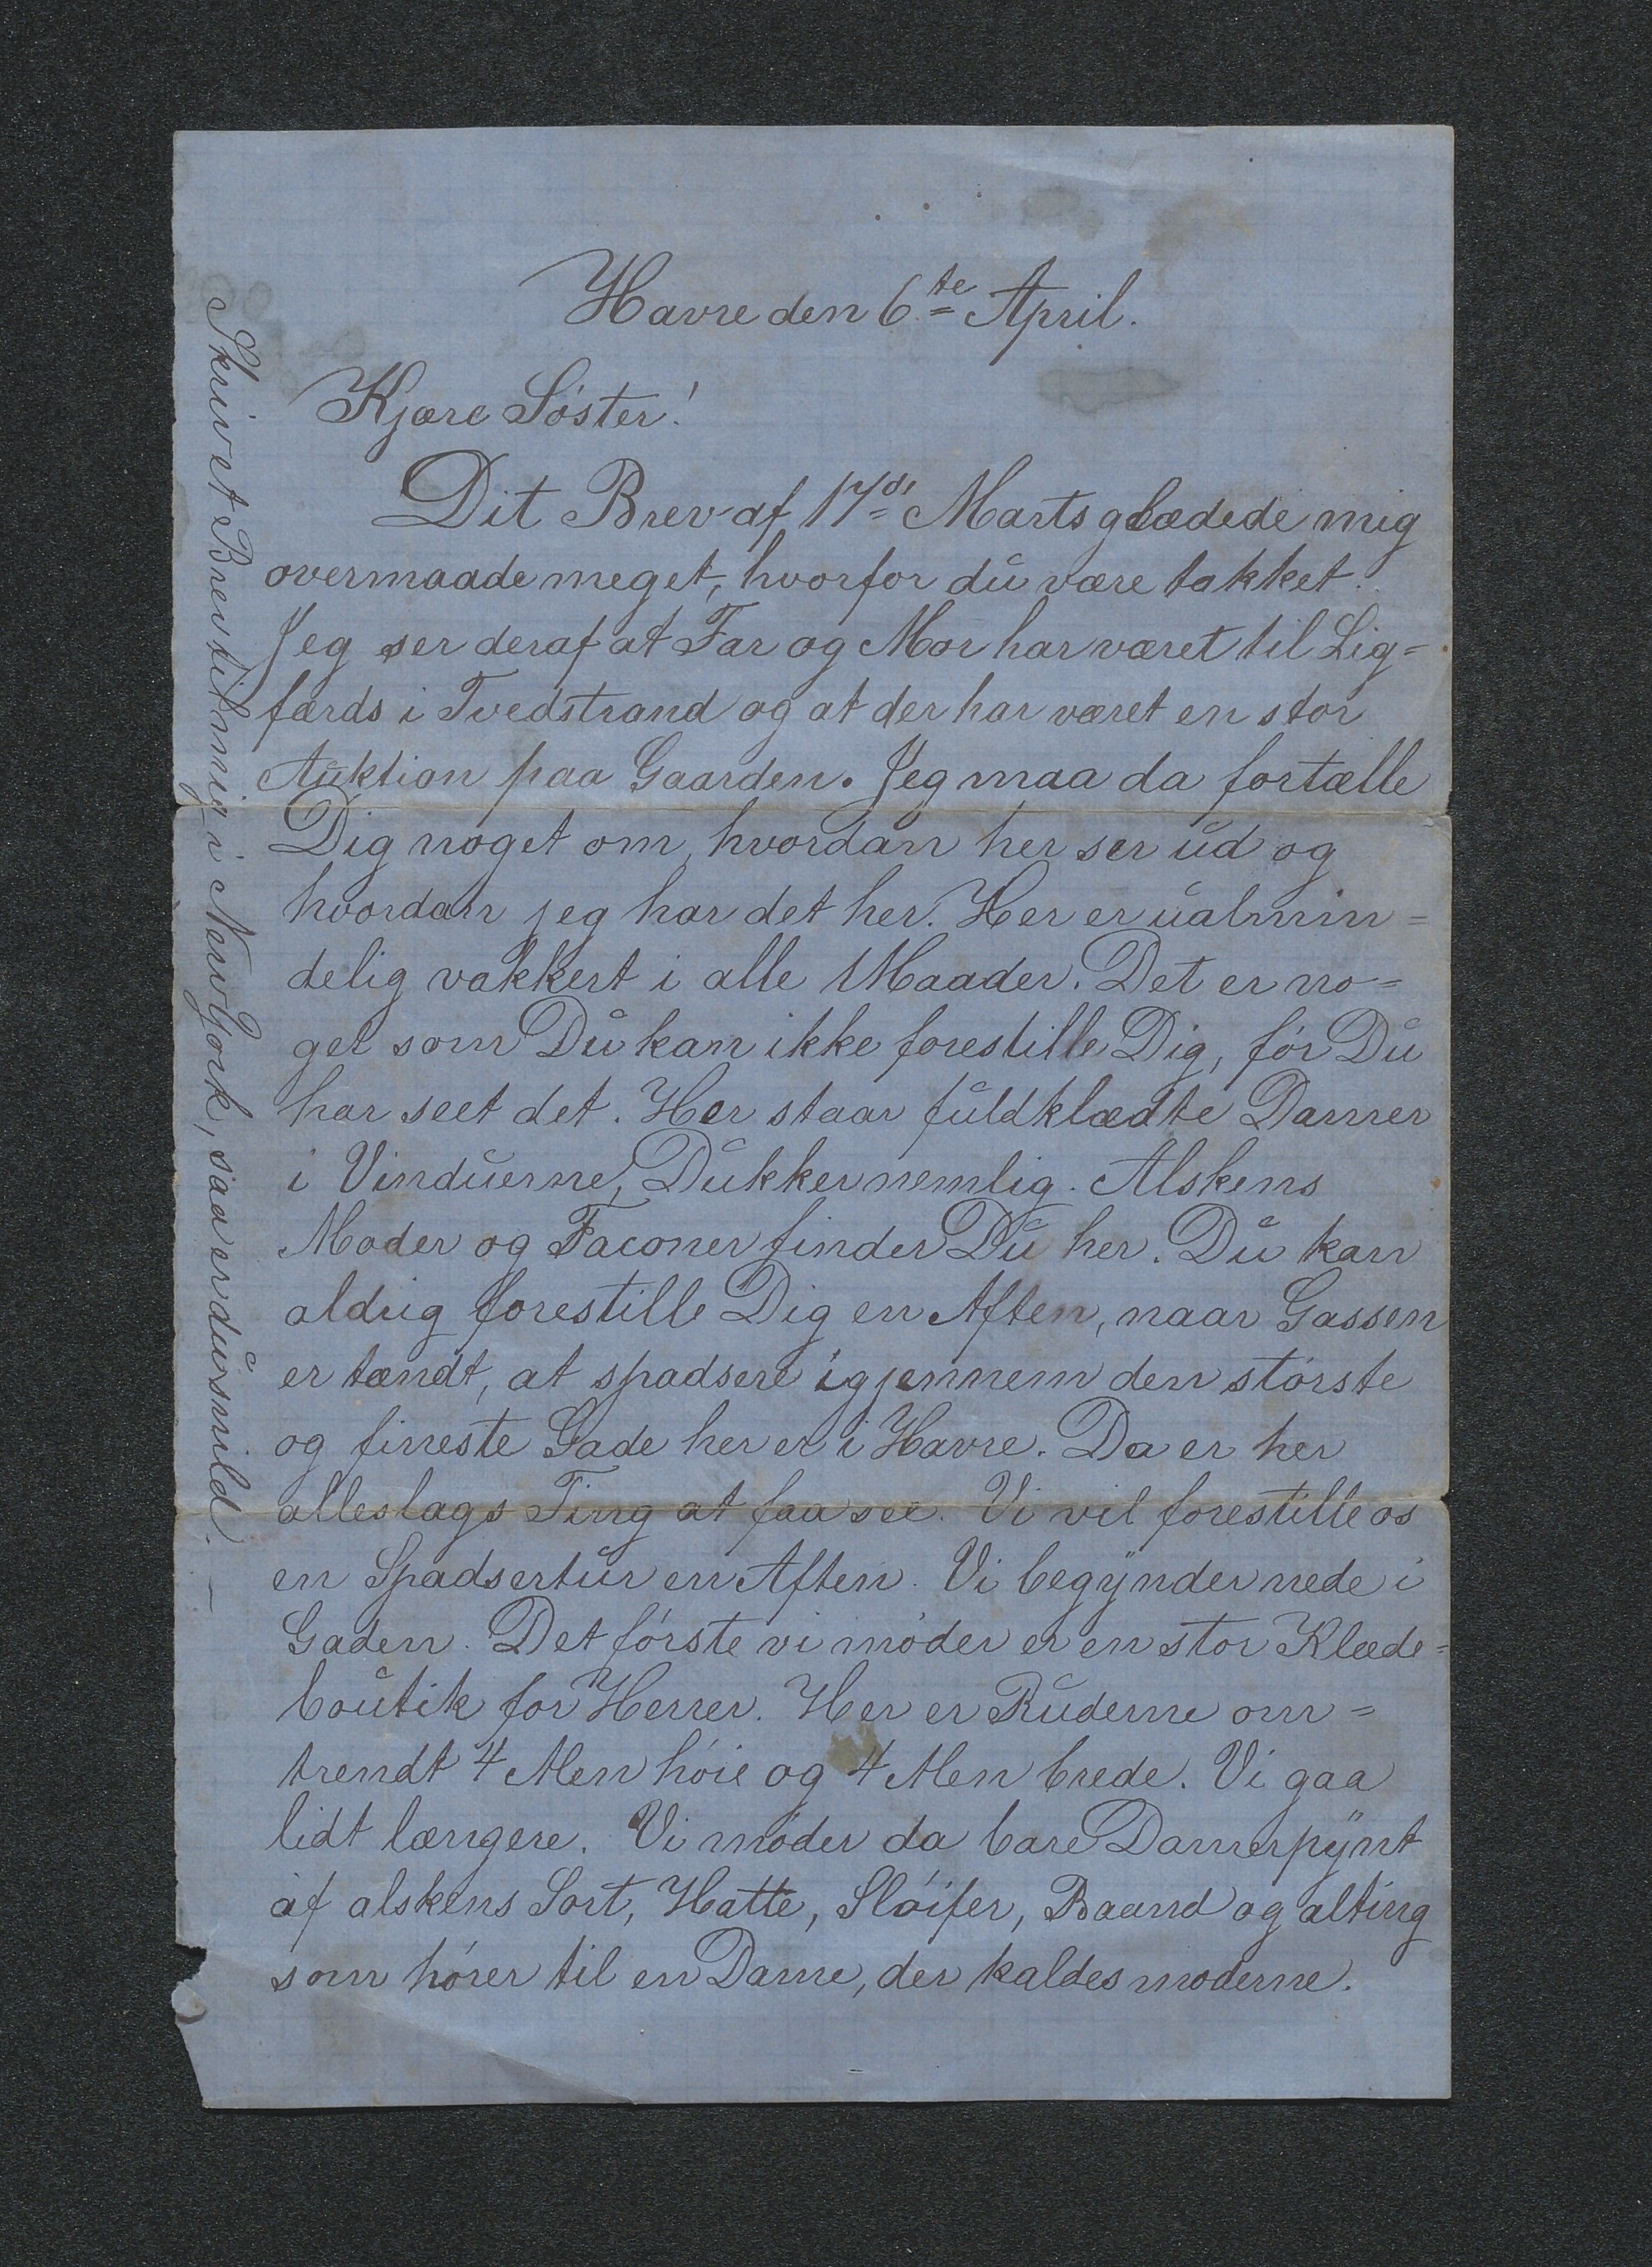 Havre den 6te April.
Kjære Søster!
Dit Brev af 17de Marts glædede mig
overmaade meget, hvorfor du være takket.
Jeg ser deraf at Far og Mor har været til Lig=
færds i Tvedstrand og at der har været en stor
Auktion paa Gaarden. Jeg maa da fortælle
Dig noget om, hvordan her ser ud og
hvordan jeg har det her. Her er ualmin=
delig vakkert i alle Maader. Det er no=
get som Du kan ikke forestille Dig, før Du
har seet det. Her staar fuldklædte Damer
i Vinduerne, Dukker nemlig. Alskens
Moder og Faconer finder Du her. Du kan
aldrig forestille Dig en Aften, naar Gassen
er tændt, at spadsere igjennem den største
og fineste Gade her er i Havre. Da er her
alleslags Ting at faa see. Vi vil forestille os
en Spadsertur en Aften. Vi begynder nede i
Gaden. Det første vi møder er en stor Klæde=
boutik for Herrer. Her er Ruderne om=
trendt 4 Alen høie og 4 Alen brede. Vi gaa
lidt længere. Vi møder da bare Damerpynt
af alskens Sort, Hatte, Sløifer, Baand og alting
som hører til en Dame, der kaldes moderne.
Skrivet Brev til mig i NewYork, saa er du snild. —